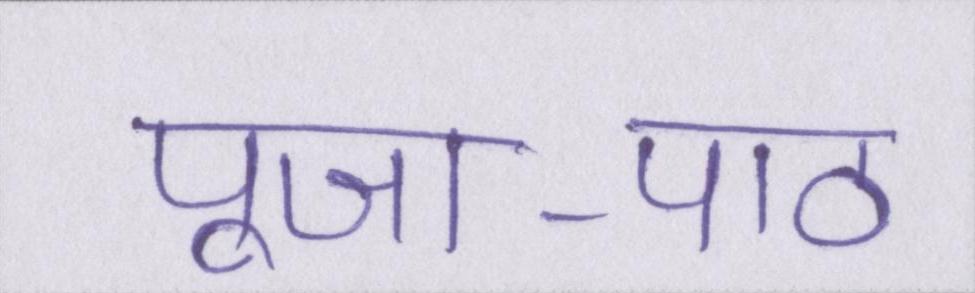 पूजा-पाठ